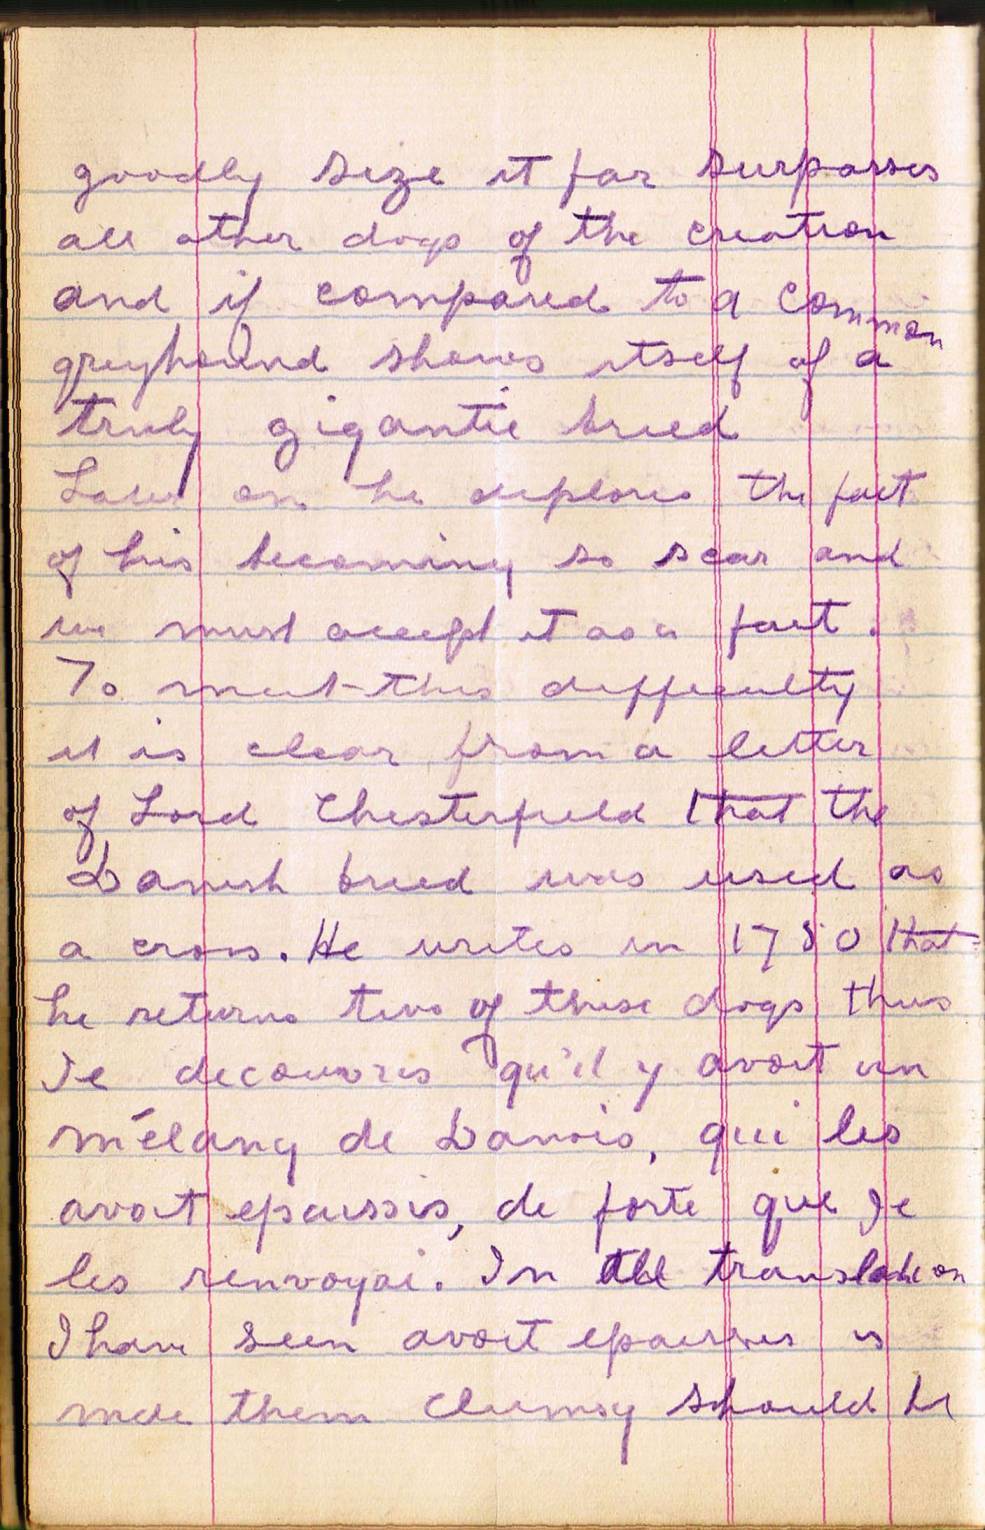 goodly size it far surpasses
all other dogs of the creation
and if compared to a common
greyhound shows itself of a
truly gigantic breed
Later on he deplores the fact
of his becoming so scar and
we must accept it as a fact.
To meet this difficulty
it is clear from a letter
of Lord Chesterfield that the
Danish breed was used as
a cross. He writes in 1750 that
he returns two of these dogs thus
Je decouvris qu'il y avoit un
mélang de Danois, qui les
avoit epaissis, de forte que Je
les renvoyai. In all translation
I have seen avoit epaissis is
made them clumsy should be